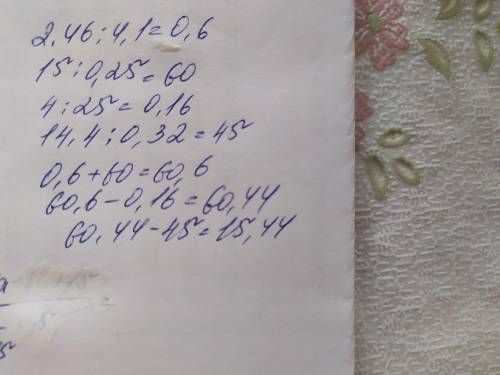 2,46:4,1=0,6
15:0,25=60
4:25=0,16
14,4:0,32=45
0,6+60=60,6
60,6-0,16=60,44
60,44-45=15,44